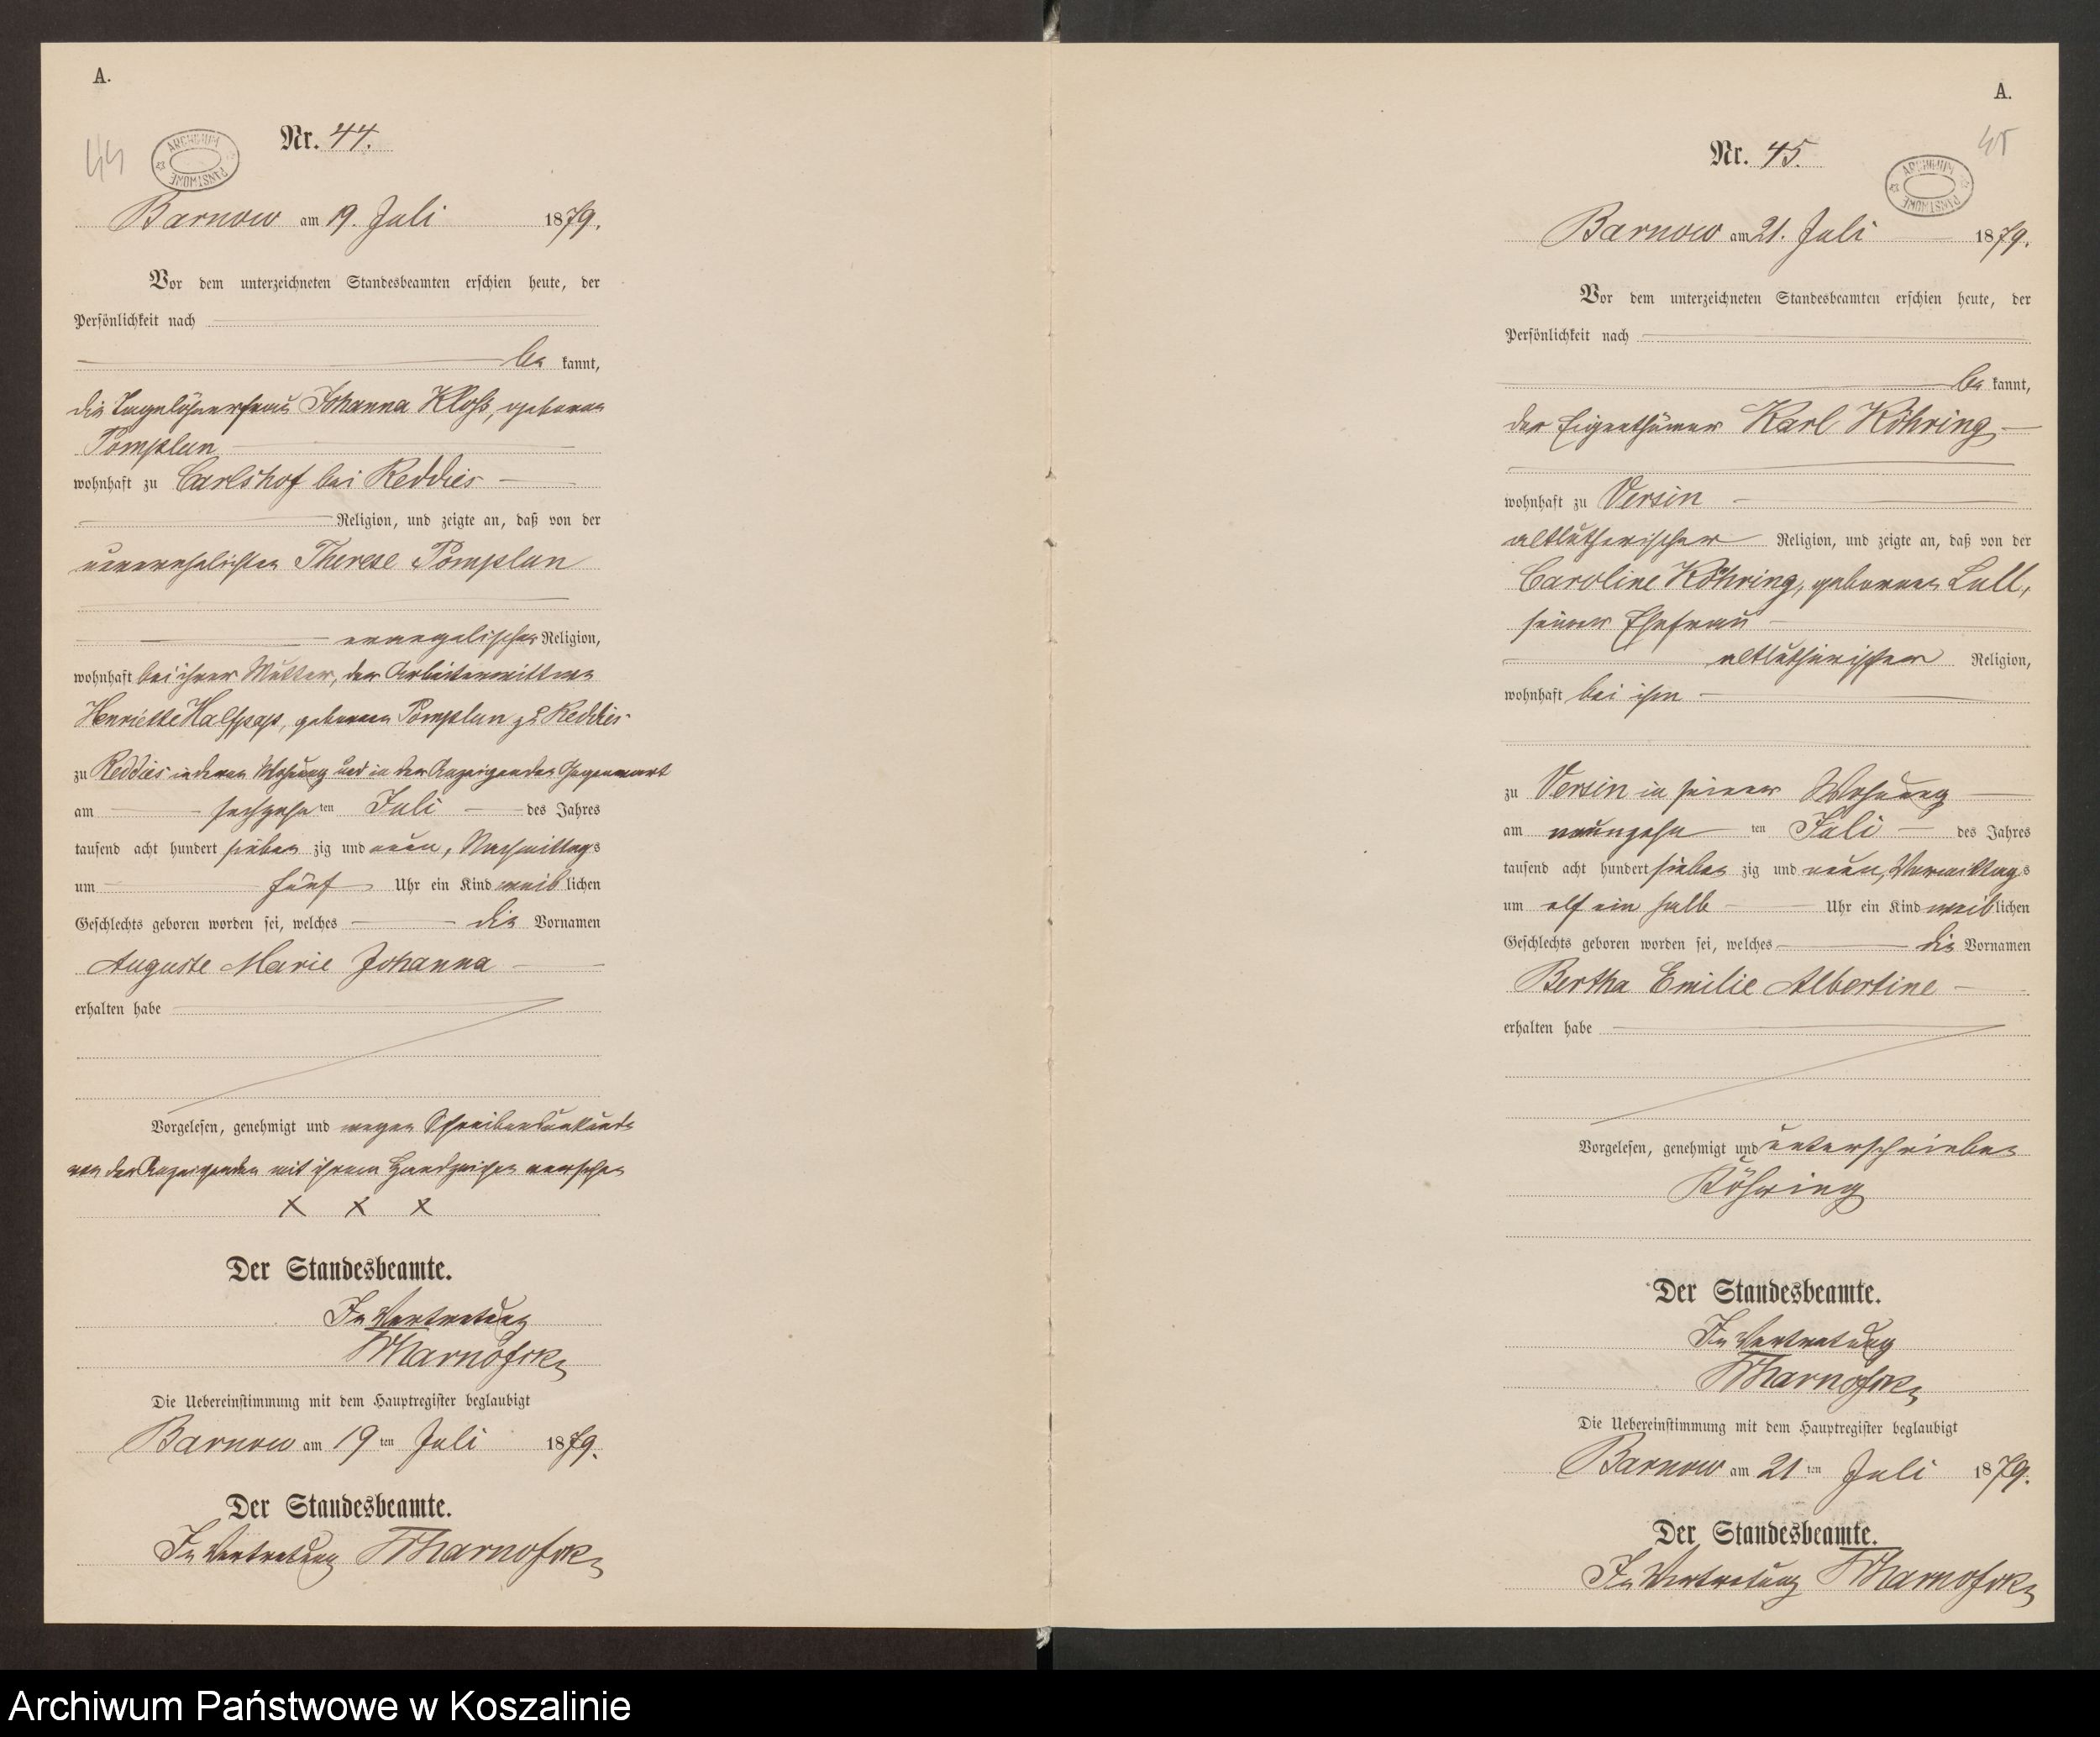 A.
44
ARCHIWUM PAŃSTWOWE
Nr. 44.
Barnow am 19. Juli 1879.
Vor dem unterzeichneten Standesbeamten erschien heute, der
Persönlichkeit nach
be kannt,
die Tagelöhnerfrau Johanna Kloß, geborene
Pomplun
wohnhaft zu Carlshof bei Reddies
Religion, und zeigte an, daß von der
unverehelichten Therese Pomplun
evangelischer Religion,
wohnhaft bei ihrer Mutter, der Arbeiterwittwe
Henriette Halfpap, geborenen Pomplun zu Reddies
zu Reddies in deren Wohnung und in der Anzeigenden Gegenwart
am sechzehn ten Juli des Jahres
tausend acht hundert sieben zig und neun, Nachmittags
um fünf Uhr ein Kind weib lichen
Geschlechts geboren worden sei, welches die Vornamen
Auguste Marie Johanna
erhalten habe
Vorgelesen, genehmigt und wegen Schreibensunkunde
von der Anzeigenden mit ihrem Handzeichen versehen
X X X
Der Standesbeamte.
In Vertretung
Die Uebereinstimmung mit dem Hauptregister beglaubigt
Barnow am 19 ten Juli 1879.
Der Standesbeamte.
In Vertretung
A.
45
ARCHIWUM PAŃSTWOWE
Nr. 45.
Barnow am 21. Juli 1879.
Vor dem unterzeichneten Standesbeamten erschien heute, der
Persönlichkeit nach
be kannt,
der Eigenthümer Karl Köhring
wohnhaft zu Versin
altlutherischer Religion, und zeigte an, daß von der
Caroline Köhring, geborenen Lull,
seiner Ehefrau
altlutherischer Religion,
wohnhaft bei ihm
zu Versin in seiner Wohnung
am neunzehn ten Juli des Jahres
tausend acht hundert sieben zig und neun, Vormittags
um elf ein halb Uhr ein Kind weib lichen
Geschlechts geboren worden sei, welches die Vornamen
Bertha Emilie Albertine
erhalten habe
Vorgelesen, genehmigt und unterschrieben
Köhring
Der Standesbeamte.
In Vertretung
Die Uebereinstimmung mit dem Hauptregister beglaubigt
Barnow am 21 ten Juli 1879.
Der Standesbeamte.
In Vertretung
Archiwum Państwowe w Koszalinie